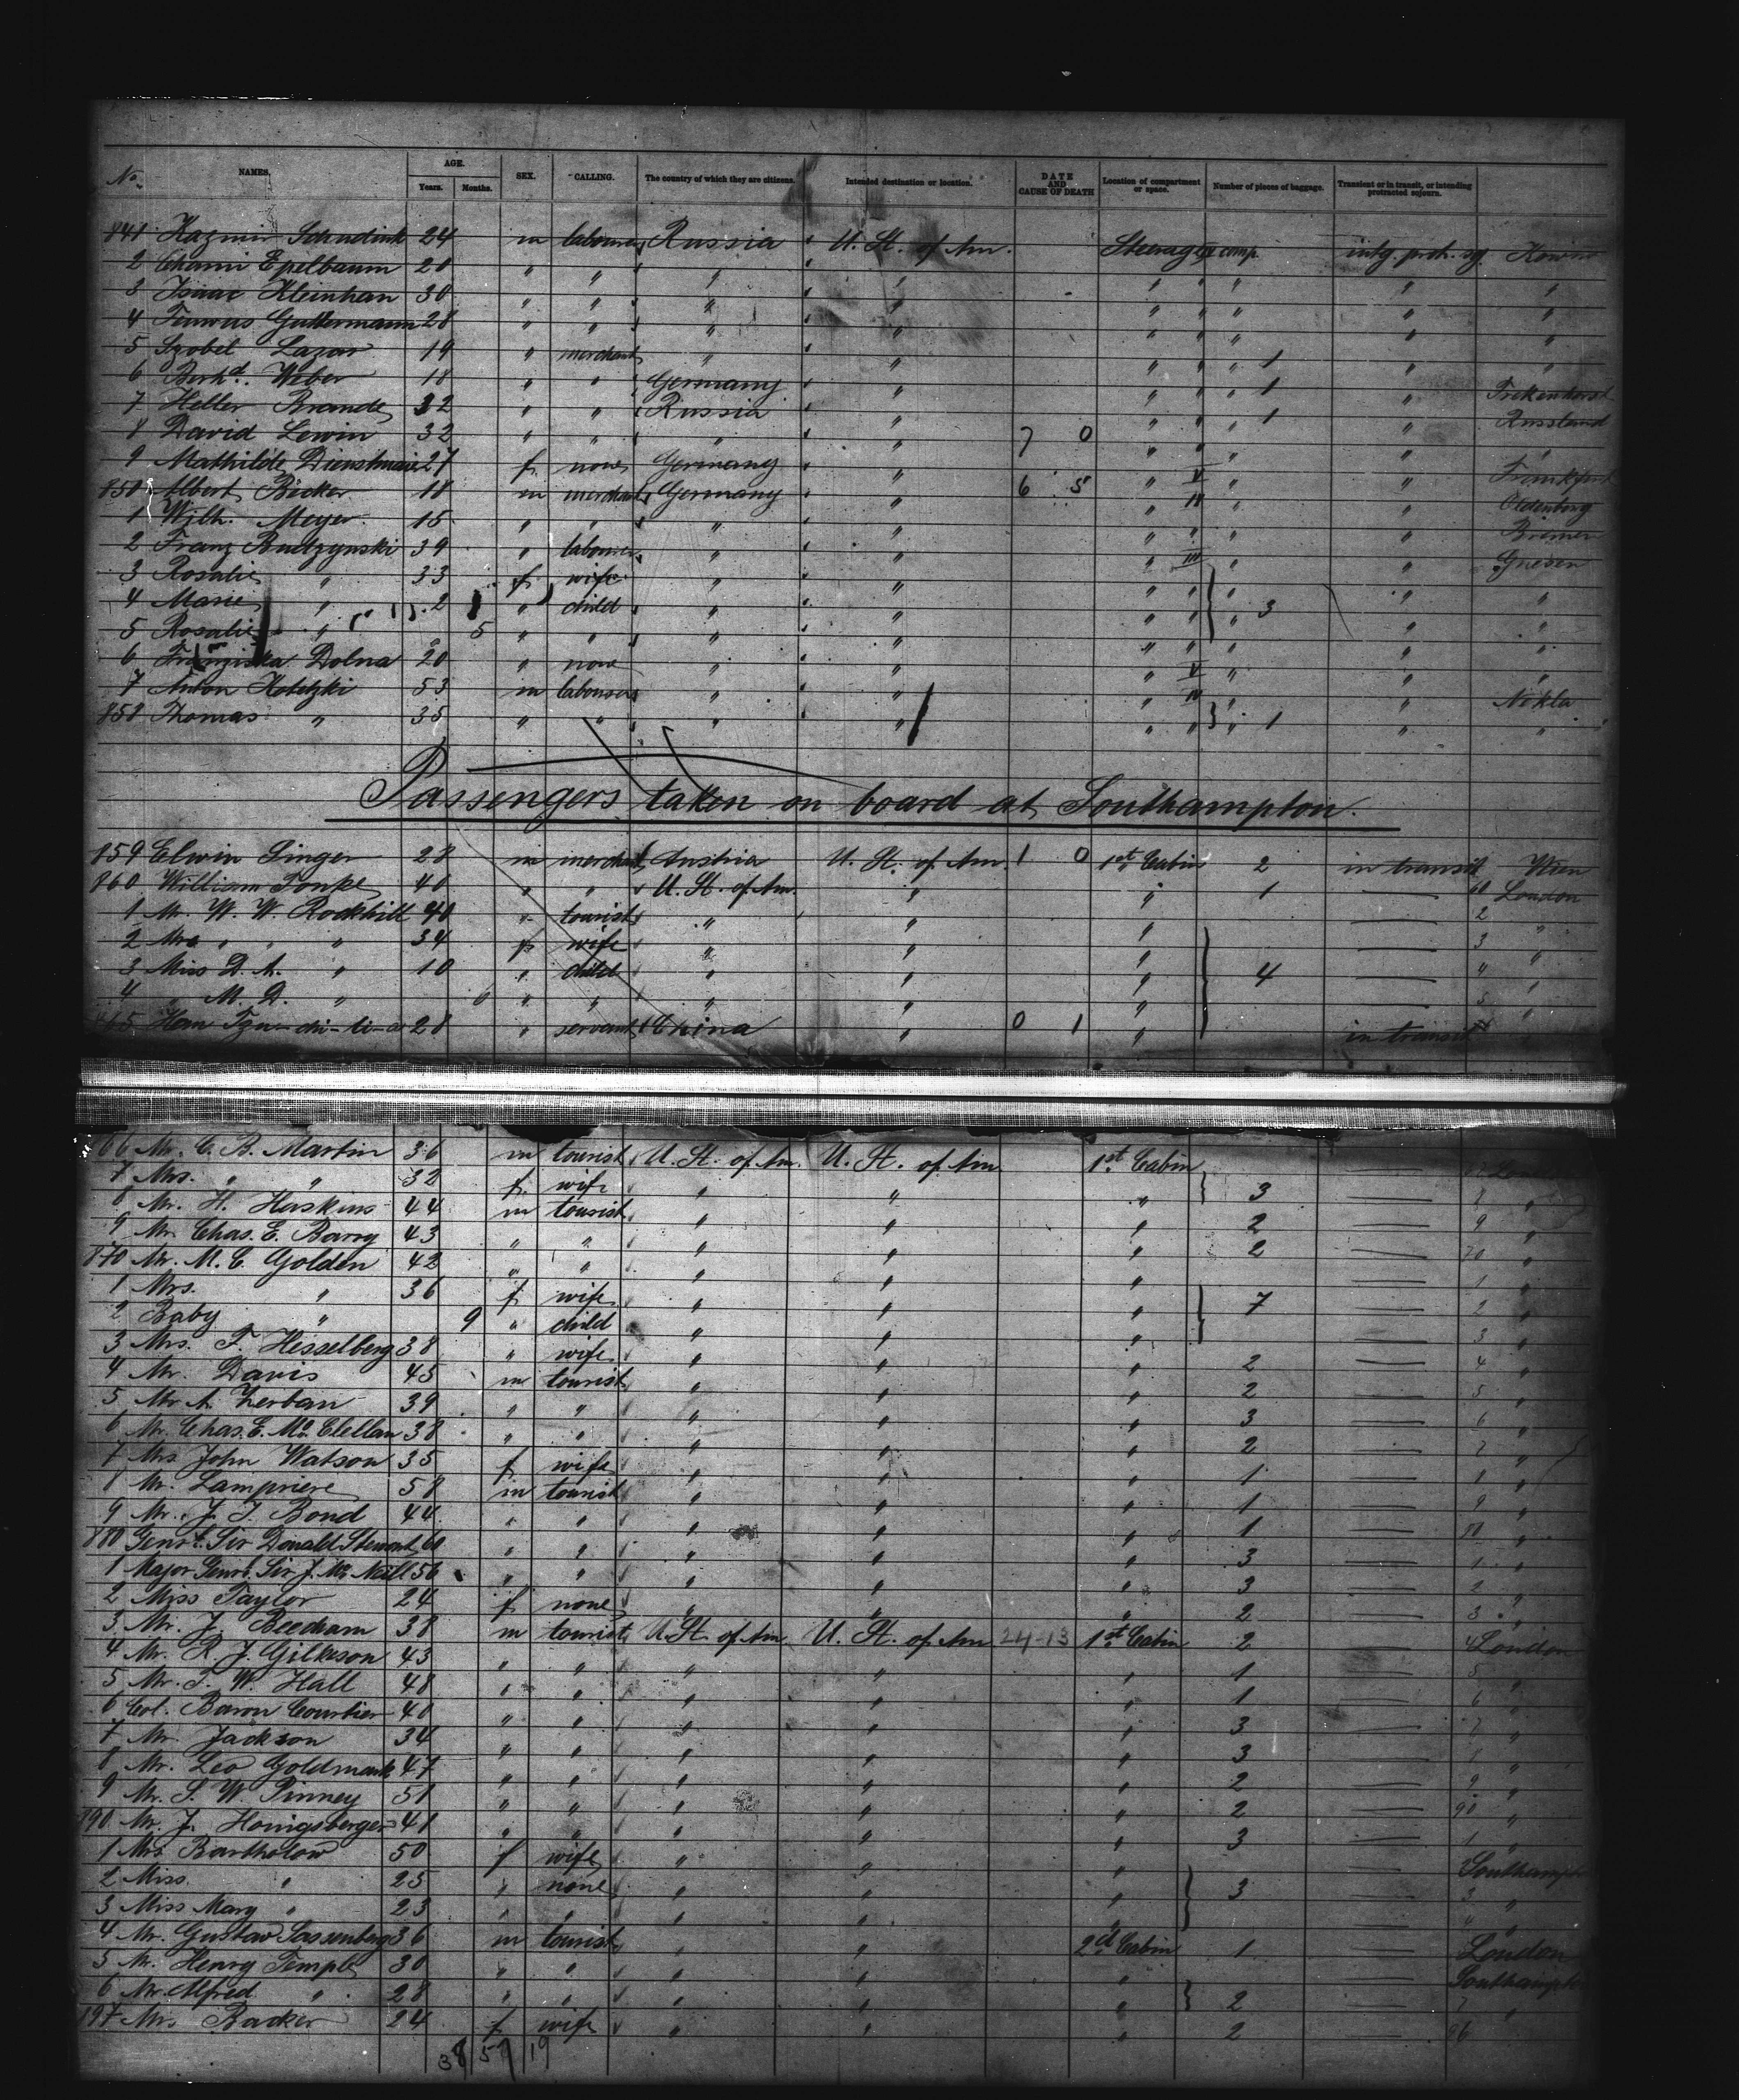 No. NAMES. AGE. Years. Months. SEX. CALLING. The country of which they are citizens. Intended destination or location. DATE AND CAUSE OF DEATH Location of compartment or space. Number of pieces of baggage. Transient or in transit, or intending protracted sojourn.
841 Kazmir 24 m labourer Russia U. St. of Am. Steerage comp. intg. prot. sg. Kowno
2 Chami Epelbaum 20 " " " " " " " " "
3 Isaac Kleinhan 30 " " " " " " " "
4 Guttermann 28 " " " " " " " "
5 Szobel Lazar 19 " merchant " " " " 1 " "
6 Berhd. Weber 18 " " Germany " " " 1 "
7 Heller Brande 32 " " Russia " " " 1 " Russland
8 David Lewin 32 " " " " 7 0 " " " "
9 Mathilde 27 f none Germany " " V " " Frankfurt
850 Albert Becker 18 m merchant Germany " 6 5 " IV " " Oldenburg
1 Wilh. Meyer 15 " " " " " " " " Bremen
2 Franz Budzynski 39 " labourer " " " III " " Gnesen
3 Rosalie " 33 f wife " " " " " " "
4 Marie " 2 " child " " " " " 3 " "
5 Rosalie " 5 " " " " " " " " "
6 Franziska Dolna 20 " none " " " V " " "
7 Anton Kotetzki 53 m labourer " " " IV " " Nekla
858 Thomas " 35 " " " " " " " 1 " "
Passengers taken on board at Southampton.
859 Elwin Singer 28 m merchant Austria U. St. of Am. 1 0 1st Cabin 2 in transit Wien
860 William Fonke 40 " " U. St. of Am. " " 1 — 60 London
1 Mr. W. W. Rockhill 40 " tourist " " " — 2 "
2 Mrs " " " 34 f wife " " " — 3 "
3 Miss D. A. " 10 " child " " " 4 — 4 "
4 " M. D. " 6 " " " " " — 5 "
865 Han Tzu-chi-li-a 28 " servant China " 0 1 " in transit "
66 Mr. C. B. Martin 36 m tourist U. St. of Am. U. St. of Am 1st Cabin — London
7 Mrs. " " 32 f wife " " " 3 — 8 "
8 Mr. H. Haskins 44 m tourist " " " 2 — 9 "
9 Mr. Chas. E. Barry 43 " " " " " 2 — 70 "
870 Mr. M. C. Golden 42 " " " " " — 1 "
1 Mrs. " 36 f wife " " " 7 — 2 "
2 Baby " 9 " child " " " — 3 "
3 Mrs. F. Hesselberg 38 " wife " " " 2 — 4 "
4 Mr. Davis 45 m tourist " " " 2 — 5 "
5 Mr. A. Zerban 39 " " " " " 3 — 6 "
6 Mr. Chas. E. Mc Clellan 38 " " " " " 2 — 7 "
7 Mrs. John Watson 35 f wife " " " 1 — 8 "
8 Mr. Lampriere 58 m tourist " " " 1 — 9 "
9 Mr. J. T. Bond 44 " " " " " 1 — 80 "
880 Genrl. Sir Donald Stewart 60 " " " " " 3 — 1 "
1 Major Genrl. Sir J. Mc Neill 56 " " " " " 3 — 2 "
2 Miss Taylor 24 f none " " " 2 — 3 "
3 Mr. J. Beecham 38 m tourist U. St. of Am U. St. of Am 24-13 1st Cabin 2 — 4 London
4 Mr. R. J. Gilkison 43 " " " " " 1 — 5 "
5 Mr. T. W. Hall 48 " " " " " 1 — 6 "
6 Col. Baron Courtier 40 " " " " " 3 — 7 "
7 Mr. Jackson 34 " " " " " 3 — 8 "
8 Mr. Leo Goldmark 47 " " " " " 2 — 9 "
9 Mr. S. W. Pinney 51 " " " " " 2 — 90 "
890 Mr. J. Honigsberger 41 " " " " " 3 — 1 "
1 Mrs Bartholow 50 f wife " " " — Southampton
2 Miss " 25 " none " " " 3 — 3 "
3 Miss Mary " 23 " " " " " — 4 "
4 Mr. Gustav Sassenberg 36 m tourist " " 2d Cabin 1 — London
5 Mr. Henry Temple 30 " " " " " — Southampton
6 Mr. Alfred " 28 " " " " " 2 — 7 "
897 Mrs Backer 24 f wife " " " 2 — 96
38 57 19